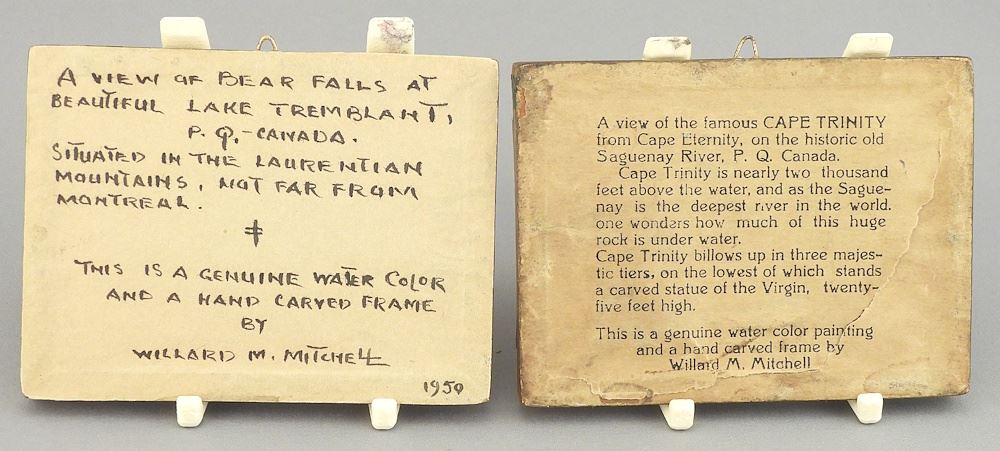 A VIEW OF BEAR FALLS AT
BEAUTIFUL LAKE TREMBLANT,
P.Q.-CANADA.
SITUATED IN THE LAURENTIAN
MOUNTAINS, NOT FAR FROM
MONTREAL.
THIS IS A GENUINE WATER COLOR
AND A HAND CARVED FRAME
BY
WILLARD M. MITCHELL
1950
A view of the famous CAPE TRINITY
from Cape Eternity, on the historic old
Saguenay River, P. Q. Canada.
Cape Trinity is nearly two thousand
feet above the water, and as the Sague-
nay is the deepest river in the world.
one wonders how much of this huge
rock is under water.
Cape Trinity billows up in three majes-
tic tiers, on the lowest of which stands
a carved statue of the Virgin, twenty-
five feet high.
This is a genuine water color painting
and a hand carved frame by
Willard M. Mitchell